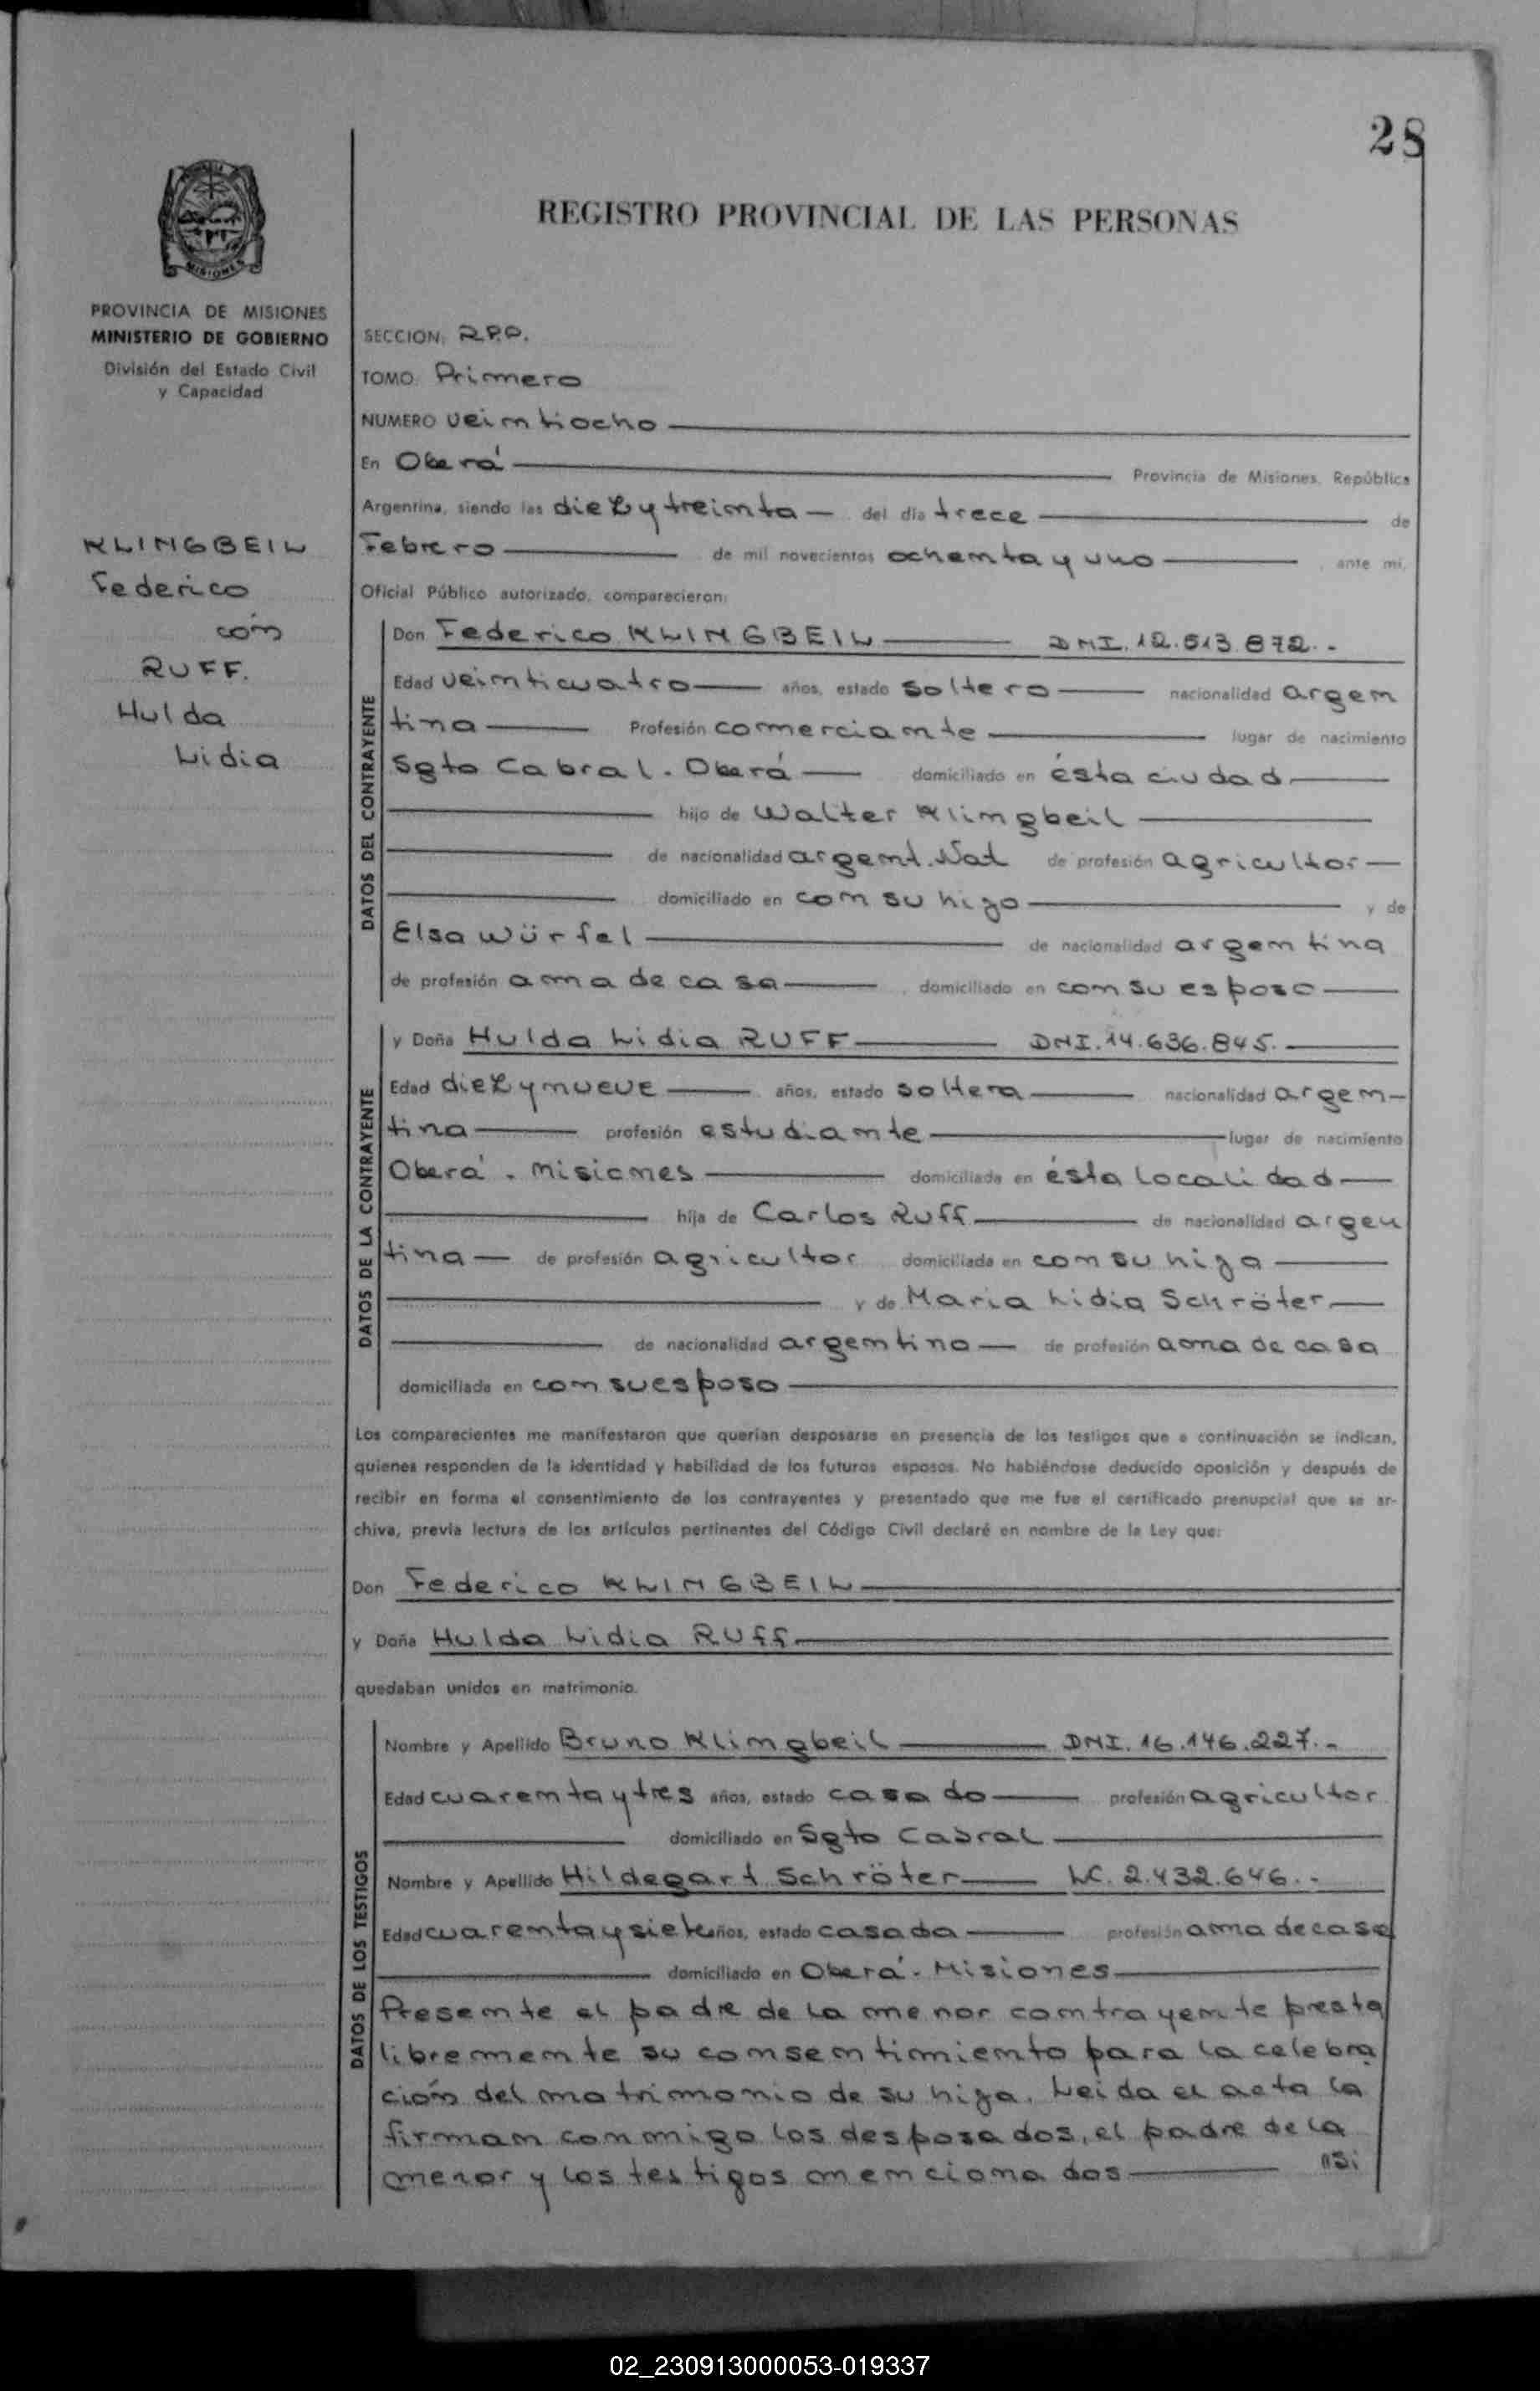 28
REGISTRO PROVINCIAL DE LAS PERSONAS
MISIONES
PROVINCIA DE MISIONES
MINISTERIO DE GOBIERNO
División del Estado Civil
y Capacidad
KLINGBEIL
Federico
con
RUFF.
Hulda
Lidia
SECCION: R.P.P.
TOMO: Primero
NUMERO veintiocho
En Oberá Provincia de Misiones, República
Argentina, siendo las diez y treinta del día trece de
Febrero de mil novecientos ochenta y uno, ante mí,
Oficial Público autorizado, comparecieron:
DATOS DEL CONTRAYENTE
Don Federico KLINGBEIL DNI. 12.513.872.-
Edad veinticuatro años, estado soltero nacionalidad argen
tina Profesión comerciante lugar de nacimiento
Sgto Cabral. Oberá domiciliado en ésta ciudad
hijo de Walter Klingbeil
de nacionalidad argent. Nat de profesión agricultor
domiciliado en con su hijo y de
Elsa Würfel de nacionalidad argentina
de profesión ama de casa domiciliado en con su esposo
DATOS DE LA CONTRAYENTE
y Doña Hulda Lidia RUFF DNI. 14.636.845.
Edad diez y nueve años, estado soltera nacionalidad argen-
tina profesión estudiante lugar de nacimiento
Oberá. Misiones domiciliada en ésta localidad
hija de Carlos Ruff. de nacionalidad argen
tina de profesión agricultor domiciliado en con su hija
y de Maria Lidia Schröter
de nacionalidad argentina de profesión ama de casa
domiciliada en con su esposo
Los comparecientes me manifestaron que querían desposarse en presencia de los testigos que a continuación se indican,
quienes responden de la identidad y habilidad de los futuros esposos. No habiéndose deducido oposición y después de
recibir en forma el consentimiento de los contrayentes y presentado que me fue el certificado prenupcial que se ar-
chiva, previa lectura de los artículos pertinentes del Código Civil declaré en nombre de la Ley que:
Don Federico KLINGBEIL
y Doña Hulda Lidia RUFF.
quedaban unidos en matrimonio.
DATOS DE LOS TESTIGOS
Nombre y Apellido Bruno Klingbeil DNI. 16.146.227.-
Edad cuarenta y tres años, estado casado profesión agricultor
domiciliado en Sgto Cabral
Nombre y Apellido Hildegart Schröter LC. 2.432.646.-
Edad cuarenta y siete años, estado casada profesión ama de casa
domiciliado en Oberá. Misiones
Presente el padre de la menor contrayente presta
libremente su consentimiento para la celebra
ción del matrimonio de su hija. Leida el acta la
firman conmigo los desposados, el padre de la
menor y los testigos mencionados
02_230913000053-019337